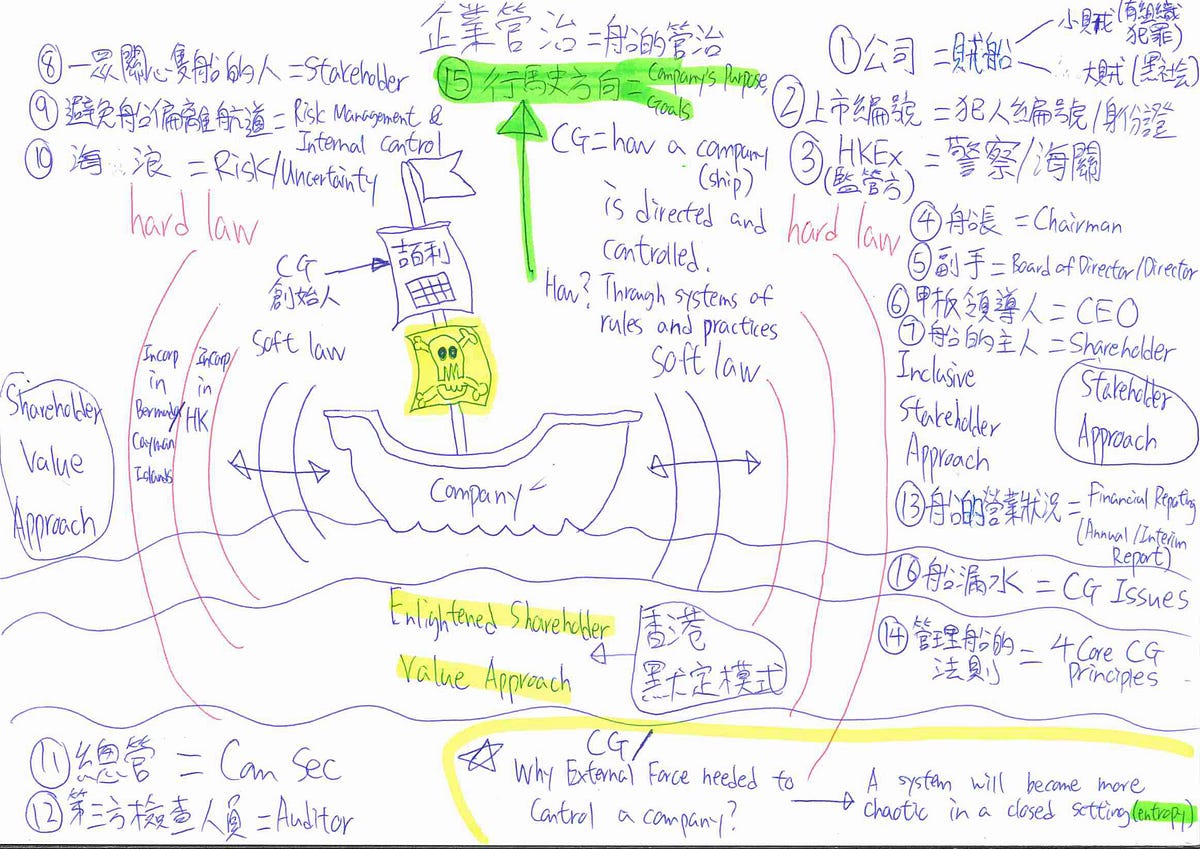 企業管治=船的管治
⑧一眾關心隻船的人=Stakeholder
⑨避免船偏離航道=Risk Management &
Internal control
⑩海浪=Risk/Uncertainty
⑮行馬史方向=Company's Purpose,
Goals
CG=how a company
(ship)
is directed and
controlled.
How? Through systems of
rules and practices
①公司=賊船
小賊(有組織
犯罪)
大賊(黑社會)
②上市編號=犯人編號/身份證
③HKEx=警察/海關
(監管方)
④船長=Chairman
⑤副手=Board of Director/Director
⑥甲板領導人=CEO
⑦船的主人=Shareholder
hard law
hard law
CG
創始人
soft law
soft law
Incorp
in
Bermuda/
Cayman
Islands
Incorp
in
HK
Shareholder
Value
Approach
Company
Inclusive
Stakeholder
Approach
Stakeholder
Approach
⑬船的營業狀況=Financial Reporting
(Annual/Interim
Report)
⑯船漏水=CG Issues
⑭管理船的
法則=4 Core CG
principles
Enlightened Shareholder
Value Approach
香港
默定模式
⑪總管=Com Sec
⑫第三方檢查人員=Auditor
CG/
Why External Force needed to
Control a company?
A system will become more
chaotic in a closed setting(entropy)